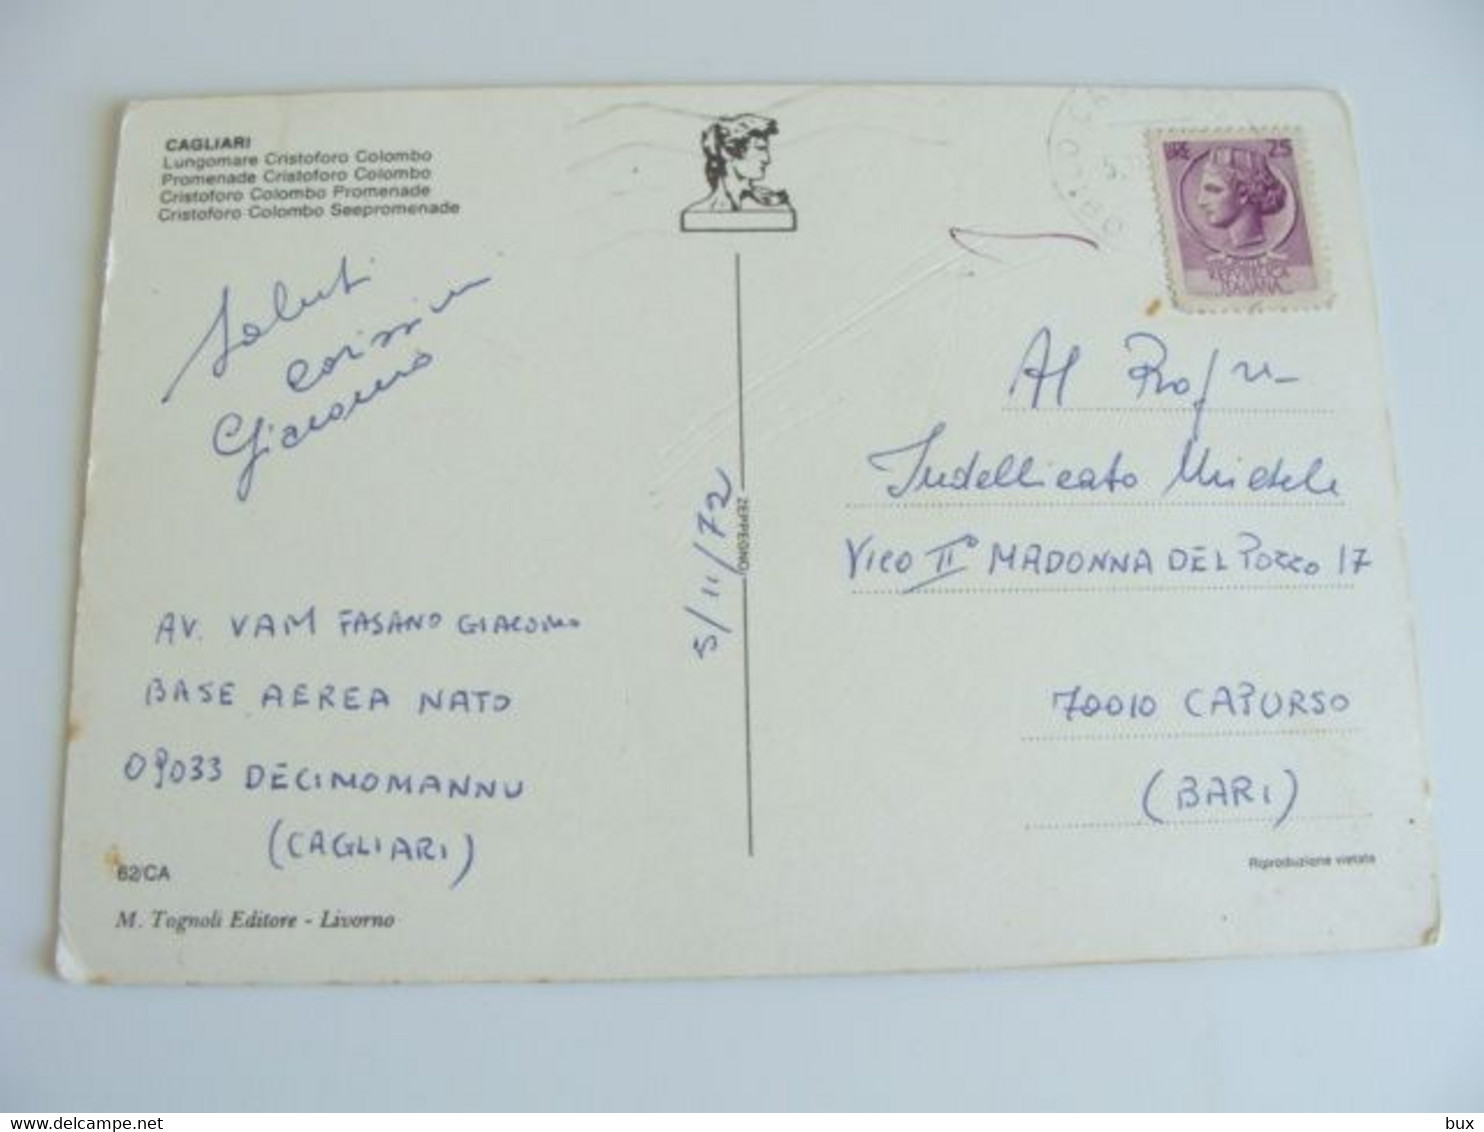 CAGLIARI
Lungomare Cristoforo Colombo
Promenade Cristoforo Colombo
Cristoforo Colombo Promenade
Cristoforo Colombo Seepromenade
25
REPUBBLICA
ITALIANA
Saluti
carissimi
Giacomo
Al Prof.
Indellicato Michele
VICO II° MADONNA DEL POZZO 17
70010 CAPURSO
(BARI)
5/11/72
ZEPPEGNO
AV. VAM FASANO GIACOMO
BASE AEREA NATO
09033 DECIMOMANNU
(CAGLIARI)
62/CA
M. Tognoli Editore - Livorno
Riproduzione vietata
bux